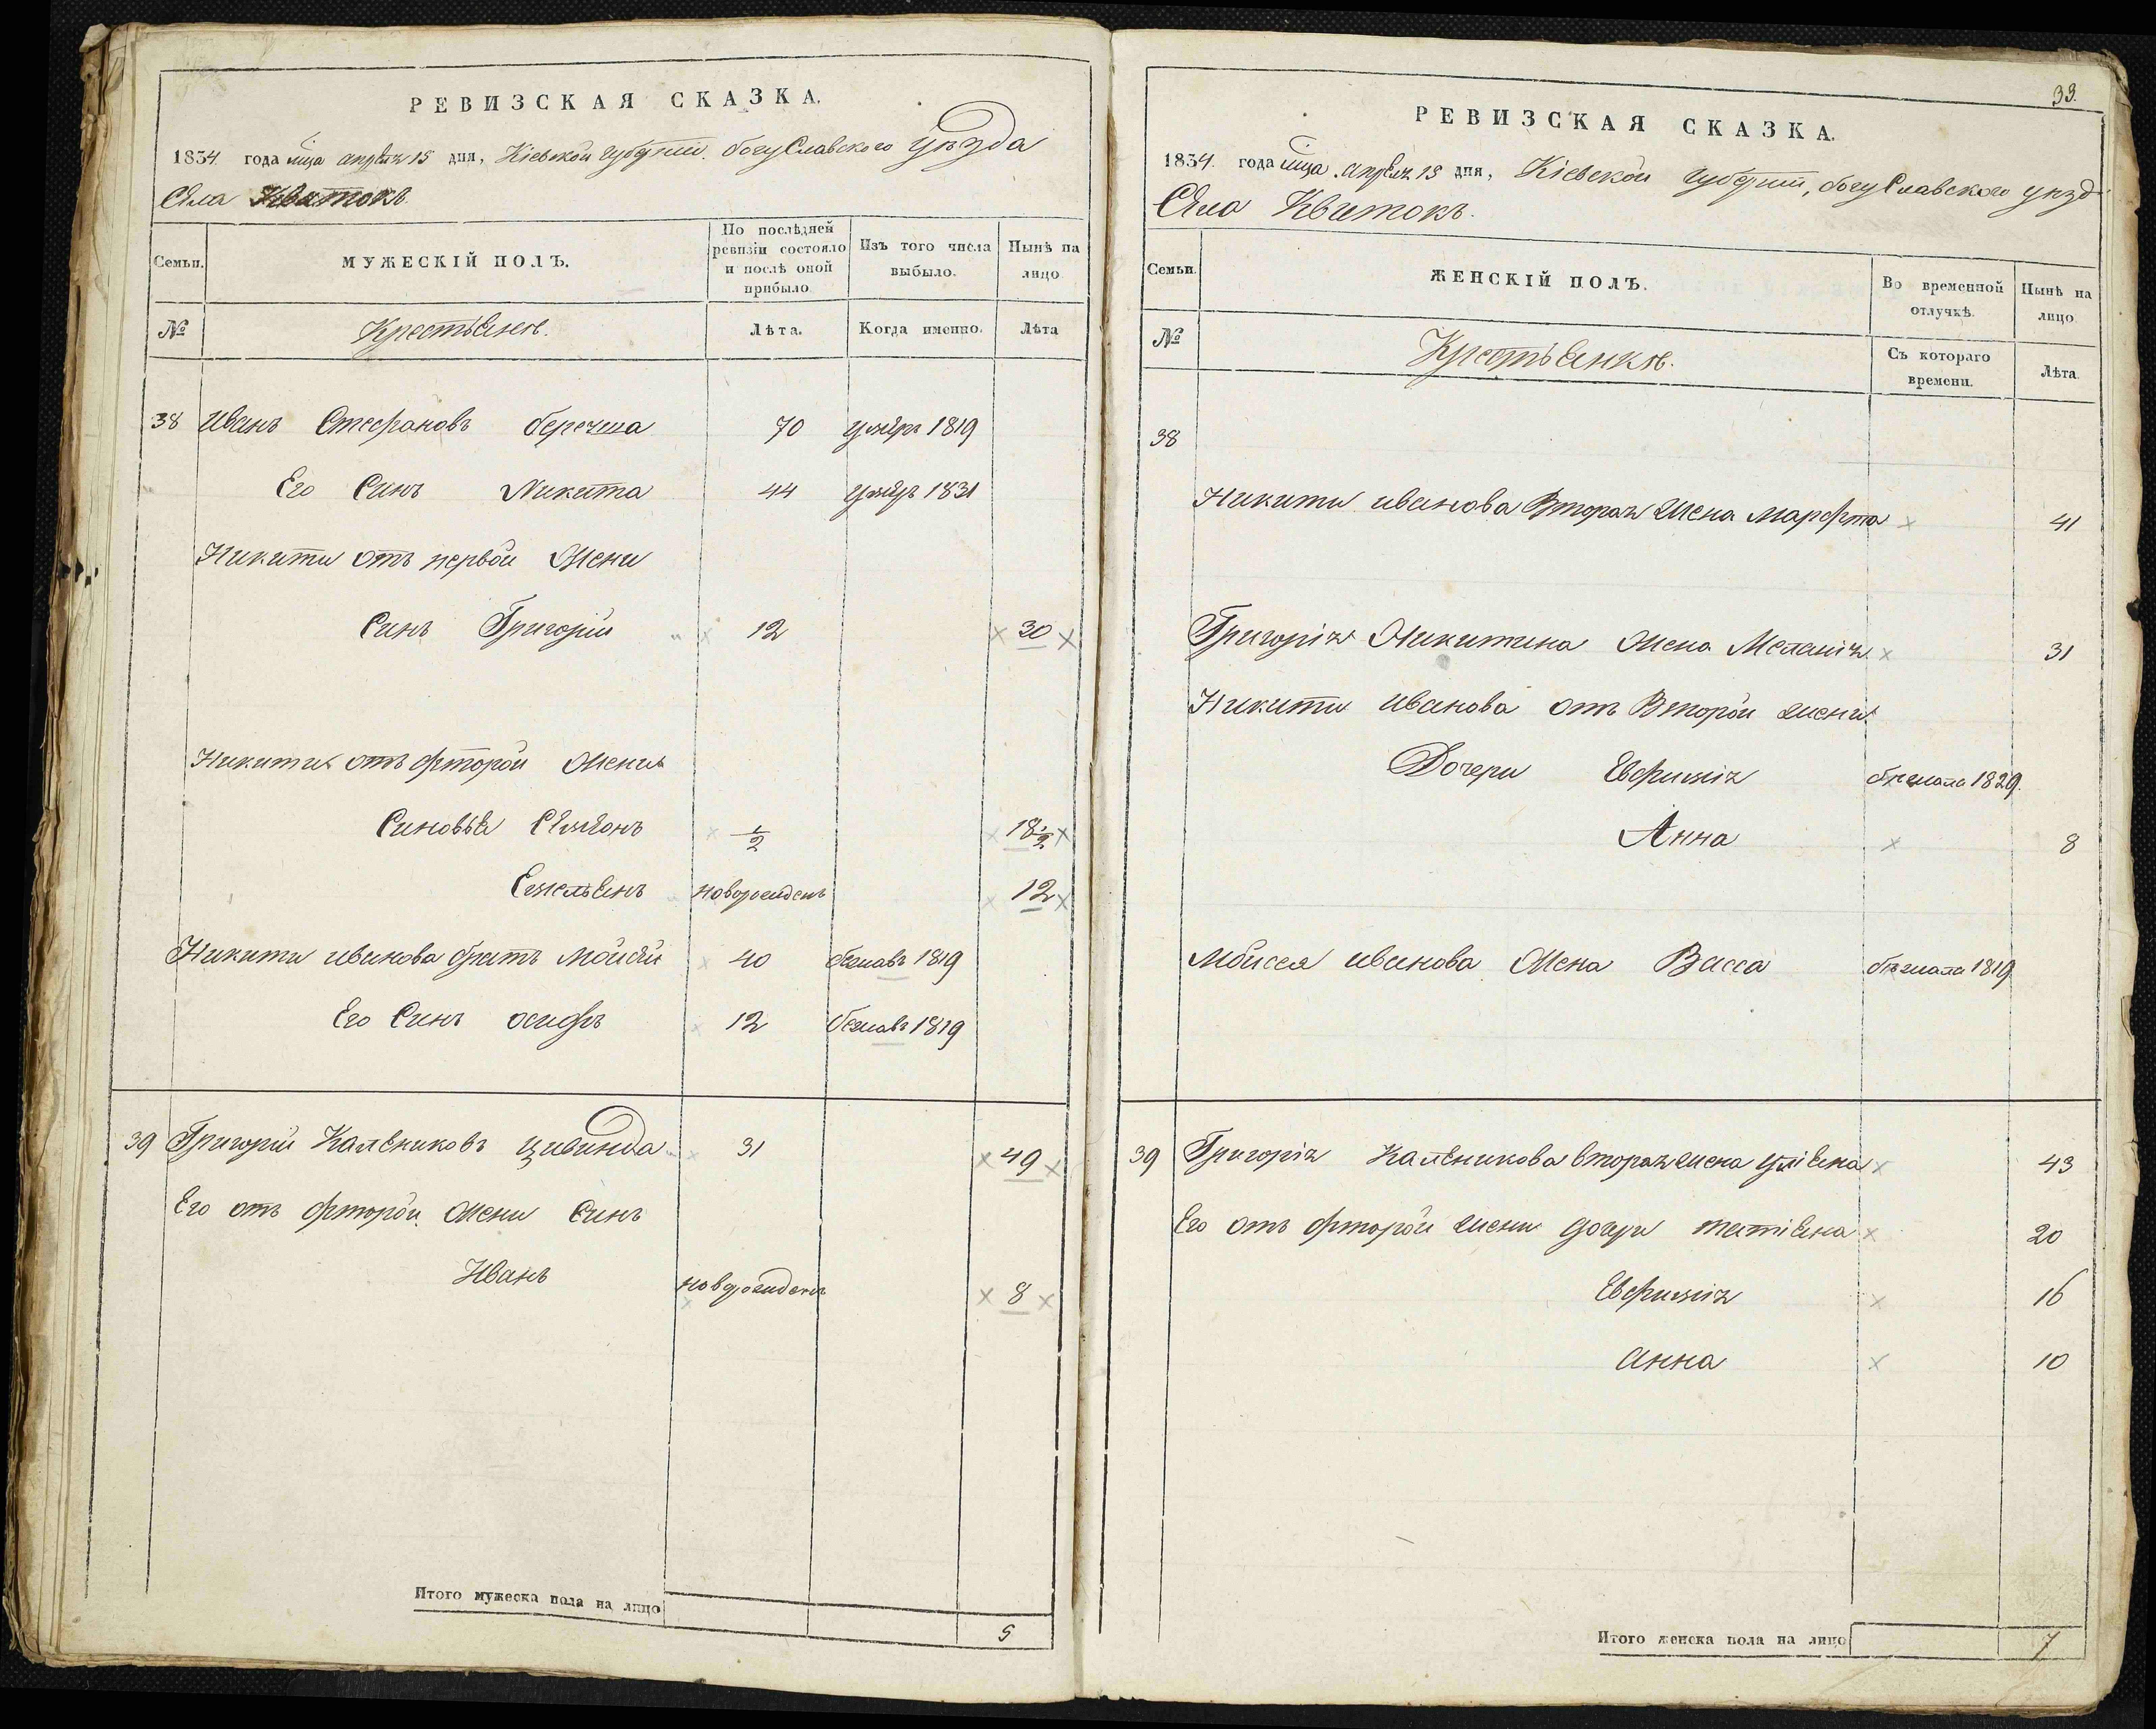 РЕВИЗСКАЯ СКАЗКА.
1834 года мца апреля 15 дня, Кіевской губерніи. богуславского уезда
Села Квитокъ
Семьи.
МУЖЕСКІЙ ПОЛЪ.
По послѣдней ревизіи состояло и послѣ оной прибыло
Изъ того числа выбыло.
Нынѣ на лицо
№
Крестьяне.
Лѣта.
Когда именно.
Лѣта
38 Иванъ Стефановъ 70 умѣръ 1819
Его Синъ Никита 44 умѣръ 1831
Никити отъ первой жени
Синъ Григорій 12 30
Никити отъ фторой жени
Синовья Семіонъ 1/2 18 1/2
Емельянъ новорожденъ 12
Никити иванова братъ мойсѣй 40 бежавъ 1819
Его Синъ осифъ 12 бежавъ 1819
39 Григорій Калениковъ цивинда 31 49
Его отъ фторой жени Синъ
Иванъ новорожденъ 8
Итого мужеска пола на лицо 5
33.
РЕВИЗСКАЯ СКАЗКА.
1834. года мца. апреля 15 дня, Кіевской губерніи, богуславского уезд
Села Квитокъ.
Семьи.
ЖЕНСКІЙ ПОЛЪ.
Во временной отлучкѣ.
Нынѣ на лицо
№
Крестьянке.
Съ котораго времени.
Лѣта
38
Никити иванова Вторая жена марфта 41
Григорія Никитина жена Меланія 31
Никити иванова отъ Второй жени
Дочери Евфимія бежала 1829.
Анна 8
мойсея иванова жена Васса бежала 1819
39 Григорія Каленикова вторая жена улiена 43
Его отъ фторой жени дочери татіена 20
Евфимія 16
анна 10
Итого женска пола на лицо 7